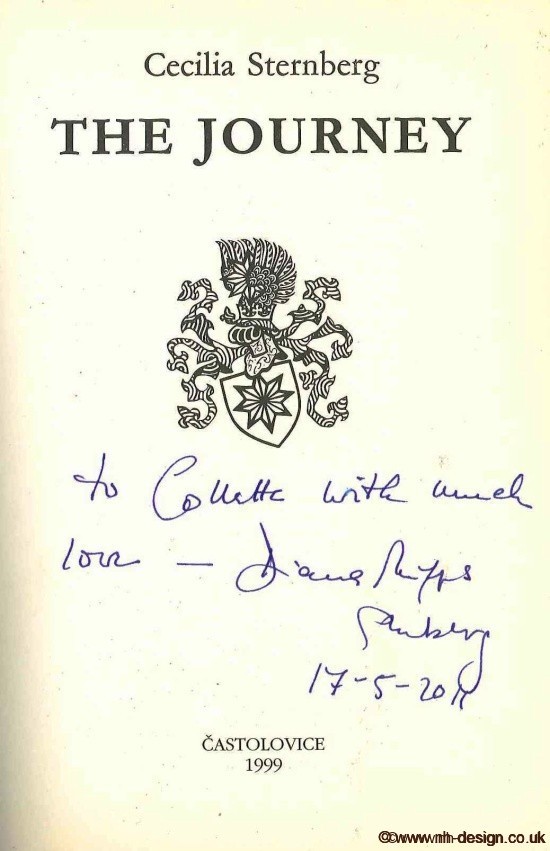 Cecilia Sternberg
THE JOURNEY
to Collette with much
love — Diana Phipps
Sternberg
17-5-2011
ČASTOLOVICE
1999
©www.nh-design.co.uk